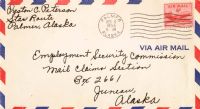 Weston C. Peterson
Star Route
Palmer, Alaska
VIA AIR MAIL
Employment Security Commission
Mail Claims Section
Box 2661
Juneau,
Alaska